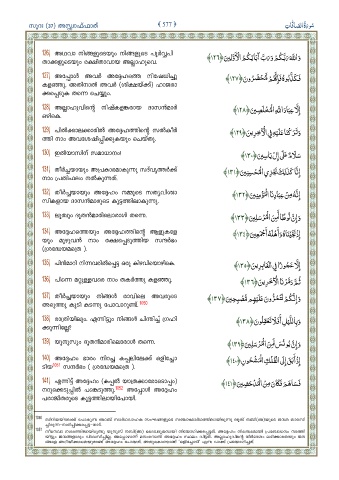 സൂറ (37) അസ്സ്വാഫ്ഫാത്ത്
﴾ 577 ﴿
سُورَةُ الصَّافَّاتِ
126) അഥവാ നിങ്ങളുടെയും നിങ്ങളുടെ പൂർവ്വപി
താക്കളുടെയും രക്ഷിതാവായ അല്ലാഹുവെ.
وَاللَّهَ رَبَّكُمْ وَرَبَّ آبَائِكُمُ الْأَوَّلِينَ ﴿١٢٦﴾
127) അപ്പോൾ അവർ അദ്ദേഹത്തെ നിഷേധിച്ചു
കളഞ്ഞു. അതിനാൽ അവർ (ശിക്ഷയ്ക്ക്) ഹാജരാ
ക്കപ്പെടുക തന്നെ ചെയ്യും.
فَكَذَّبُوهُ فَإِنَّهُمْ لَمُحْضَرُونَ ﴿١٢٧﴾
128) അല്ലാഹുവിന്റെ നിഷ്കളങ്കരായ ദാസൻമാർ
ഒഴികെ.
إِلَّا عِبَادَ اللَّهِ الْمُخْلَصِينَ ﴿١٢٨﴾
129) പിൽക്കാലക്കാരിൽ അദ്ദേഹത്തിന്റെ സൽകീർ
ത്തി നാം അവശേഷിപ്പിക്കുകയും ചെയ്തു.
وَتَرَكْنَا عَلَيْهِ فِي الْآخِرِينَ ﴿١٢٩﴾
130) ഇൽയാസിന് സമാധാനം!
سَلَامٌ عَلَىٰ إِلْ يَاسِينَ ﴿١٣٠﴾
131) തീർച്ചയായും അപ്രകാരമാകുന്നു സദ്‌വൃത്തർക്ക്
നാം പ്രതിഫലം നൽകുന്നത്.
إِنَّا كَذَٰلِكَ نَجْزِي الْمُحْسِنِينَ ﴿١٣١﴾
132) തീർച്ചയായും അദ്ദേഹം നമ്മുടെ സത്യവിശ്വാ
സികളായ ദാസൻമാരുടെ കൂട്ടത്തിലാകുന്നു.
إِنَّهُ مِنْ عِبَادِنَا الْمُؤْمِنِينَ ﴿١٣٢﴾
133) ലൂത്വും ദൂതൻമാരിലൊരാൾ തന്നെ.
وَإِنَّ لُوطًا لَّمِنَ الْمُرْسَلِينَ ﴿١٣٣﴾
134) അദ്ദേഹത്തെയും അദ്ദേഹത്തിന്റെ ആളുകളെ
യും മുഴുവൻ നാം രക്ഷപ്പെടുത്തിയ സന്ദർഭം
(ശ്രദ്ധേയമത്രെ ).
إِذْ نَجَّيْنَاهُ وَأَهْلَهُ أَجْمَعِينَ ﴿١٣٤﴾
135) പിൻമാറി നിന്നവരിൽപ്പെട്ട ഒരു കിഴവിയൊഴികെ.
إِلَّا عَجُوزًا فِي الْغَابِرِينَ ﴿١٣٥﴾
136) പിന്നെ മറ്റുള്ളവരെ നാം തകർത്തു കളഞ്ഞു.
ثُمَّ دَمَّرْنَا الْآخَرِينَ ﴿١٣٦﴾
137) തീർച്ചയായും നിങ്ങൾ രാവിലെ അവരുടെ
അടുത്തു കൂടി കടന്നു പോവാറുണ്ട്.
وَإِنَّكُمْ لَتَمُرُّونَ عَلَيْهِم مُّصْبِحِينَ ﴿١٣٧﴾
138) രാത്രിയിലും. എന്നിട്ടും നിങ്ങൾ ചിന്തിച്ച് ഗ്രഹി
ക്കുന്നില്ലേ?
وَبِاللَّيْلِ أَفَلَا تَعْقِلُونَ ﴿١٣٨﴾
139) യൂനുസും ദൂതൻമാരിലൊരാൾ തന്നെ.
وَإِنَّ يُونُسَ لَمِنَ الْمُرْسَلِينَ ﴿١٣٩﴾
140) അദ്ദേഹം ഭാരം നിറച്ച കപ്പലിലേക്ക് ഒളിച്ചോ
ടിയ സന്ദർഭം ( ശ്രദ്ധേയമത്രെ ).
إِذْ أَبَقَ إِلَى الْفُلْكِ الْمَشْحُونِ ﴿١٤٠﴾
141) എന്നിട്ട് അദ്ദേഹം (കപ്പൽ യാത്രക്കാരോടൊപ്പം)
നറുക്കെടുപ്പിൽ പങ്കെടുത്തു. അപ്പോൾ അദ്ദേഹം
പരാജിതരുടെ കൂട്ടത്തിലായിപോയി.
فَسَاهَمَ فَكَانَ مِنَ الْمُدْحَضِينَ ﴿١٤١﴾